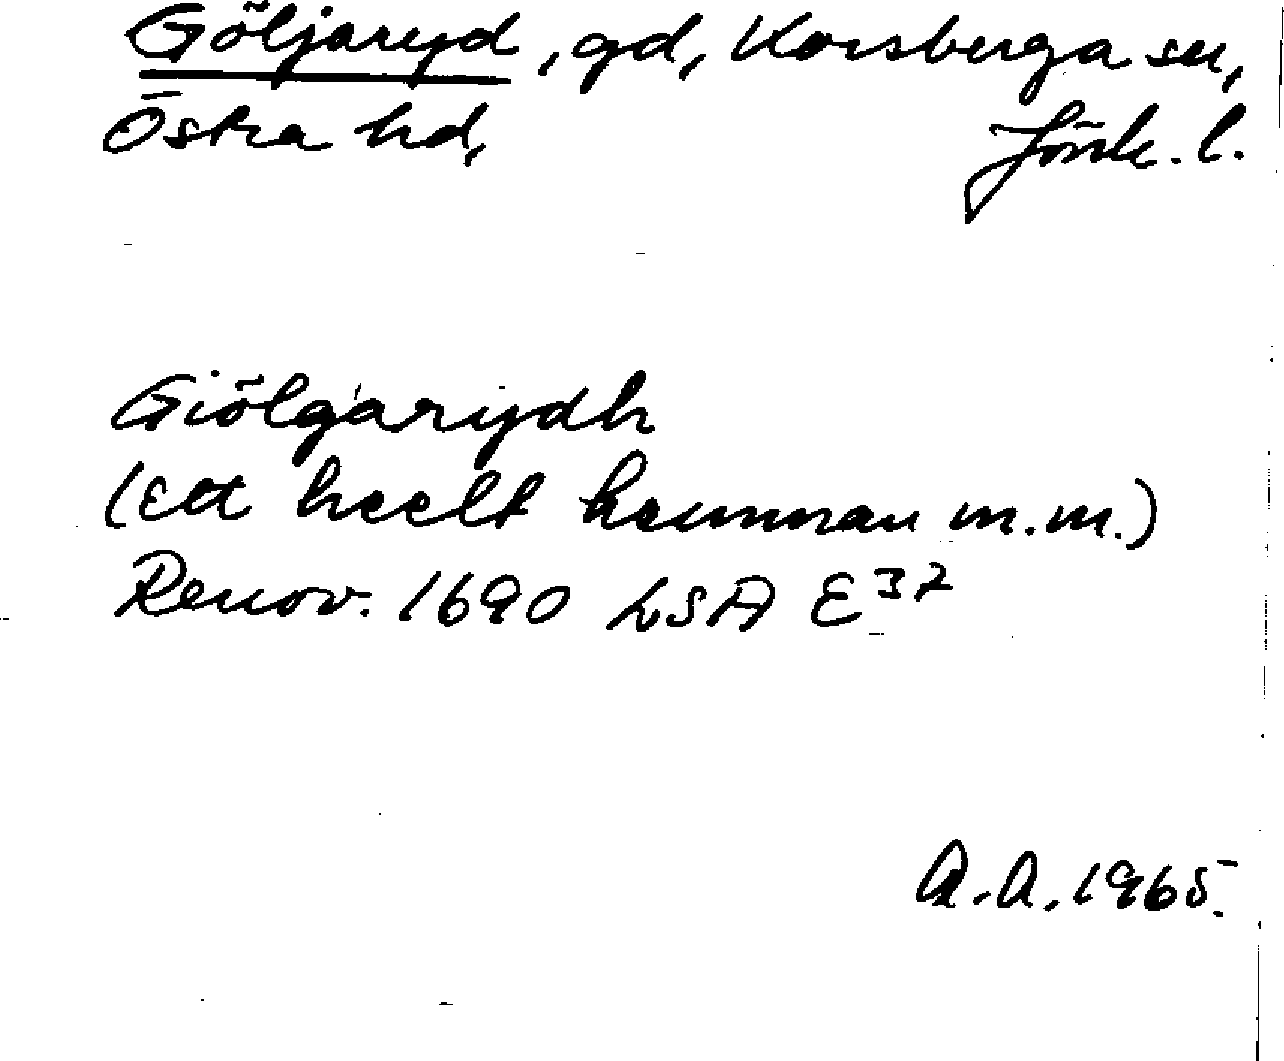 Göljaryd, gd, Korsberga sn,
Östra hd, Jönk. l.
Giölgarydh
(Ett heelt hemman m.m.)
Renov. 1690 LSA E³⁷
A.A. 1965.